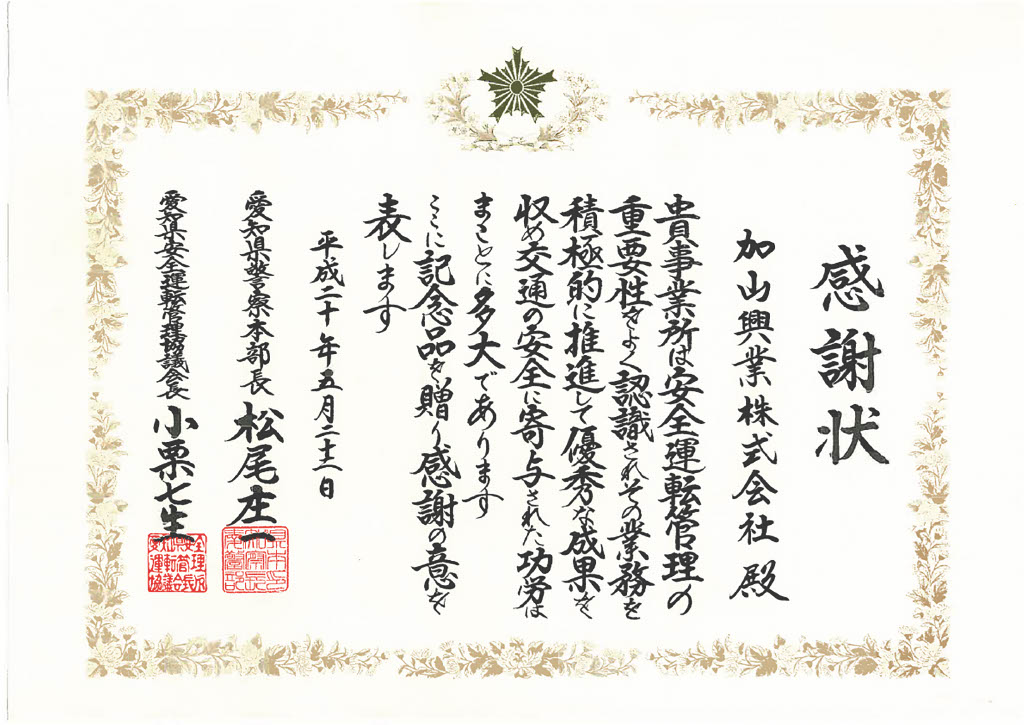 感謝状
加山興業株式会社殿
貴事業所は安全運転管理の
重要性をよく認識されその業務を
積極的に推進して優秀な成果を
収め交通の安全に寄与された功労は
まことに多大であります
ここに記念品を贈り感謝の意を
表します
平成二十年五月二十二日
愛知県警察本部長 松尾庄一
愛知県安全運転管理協議会長 小栗七生